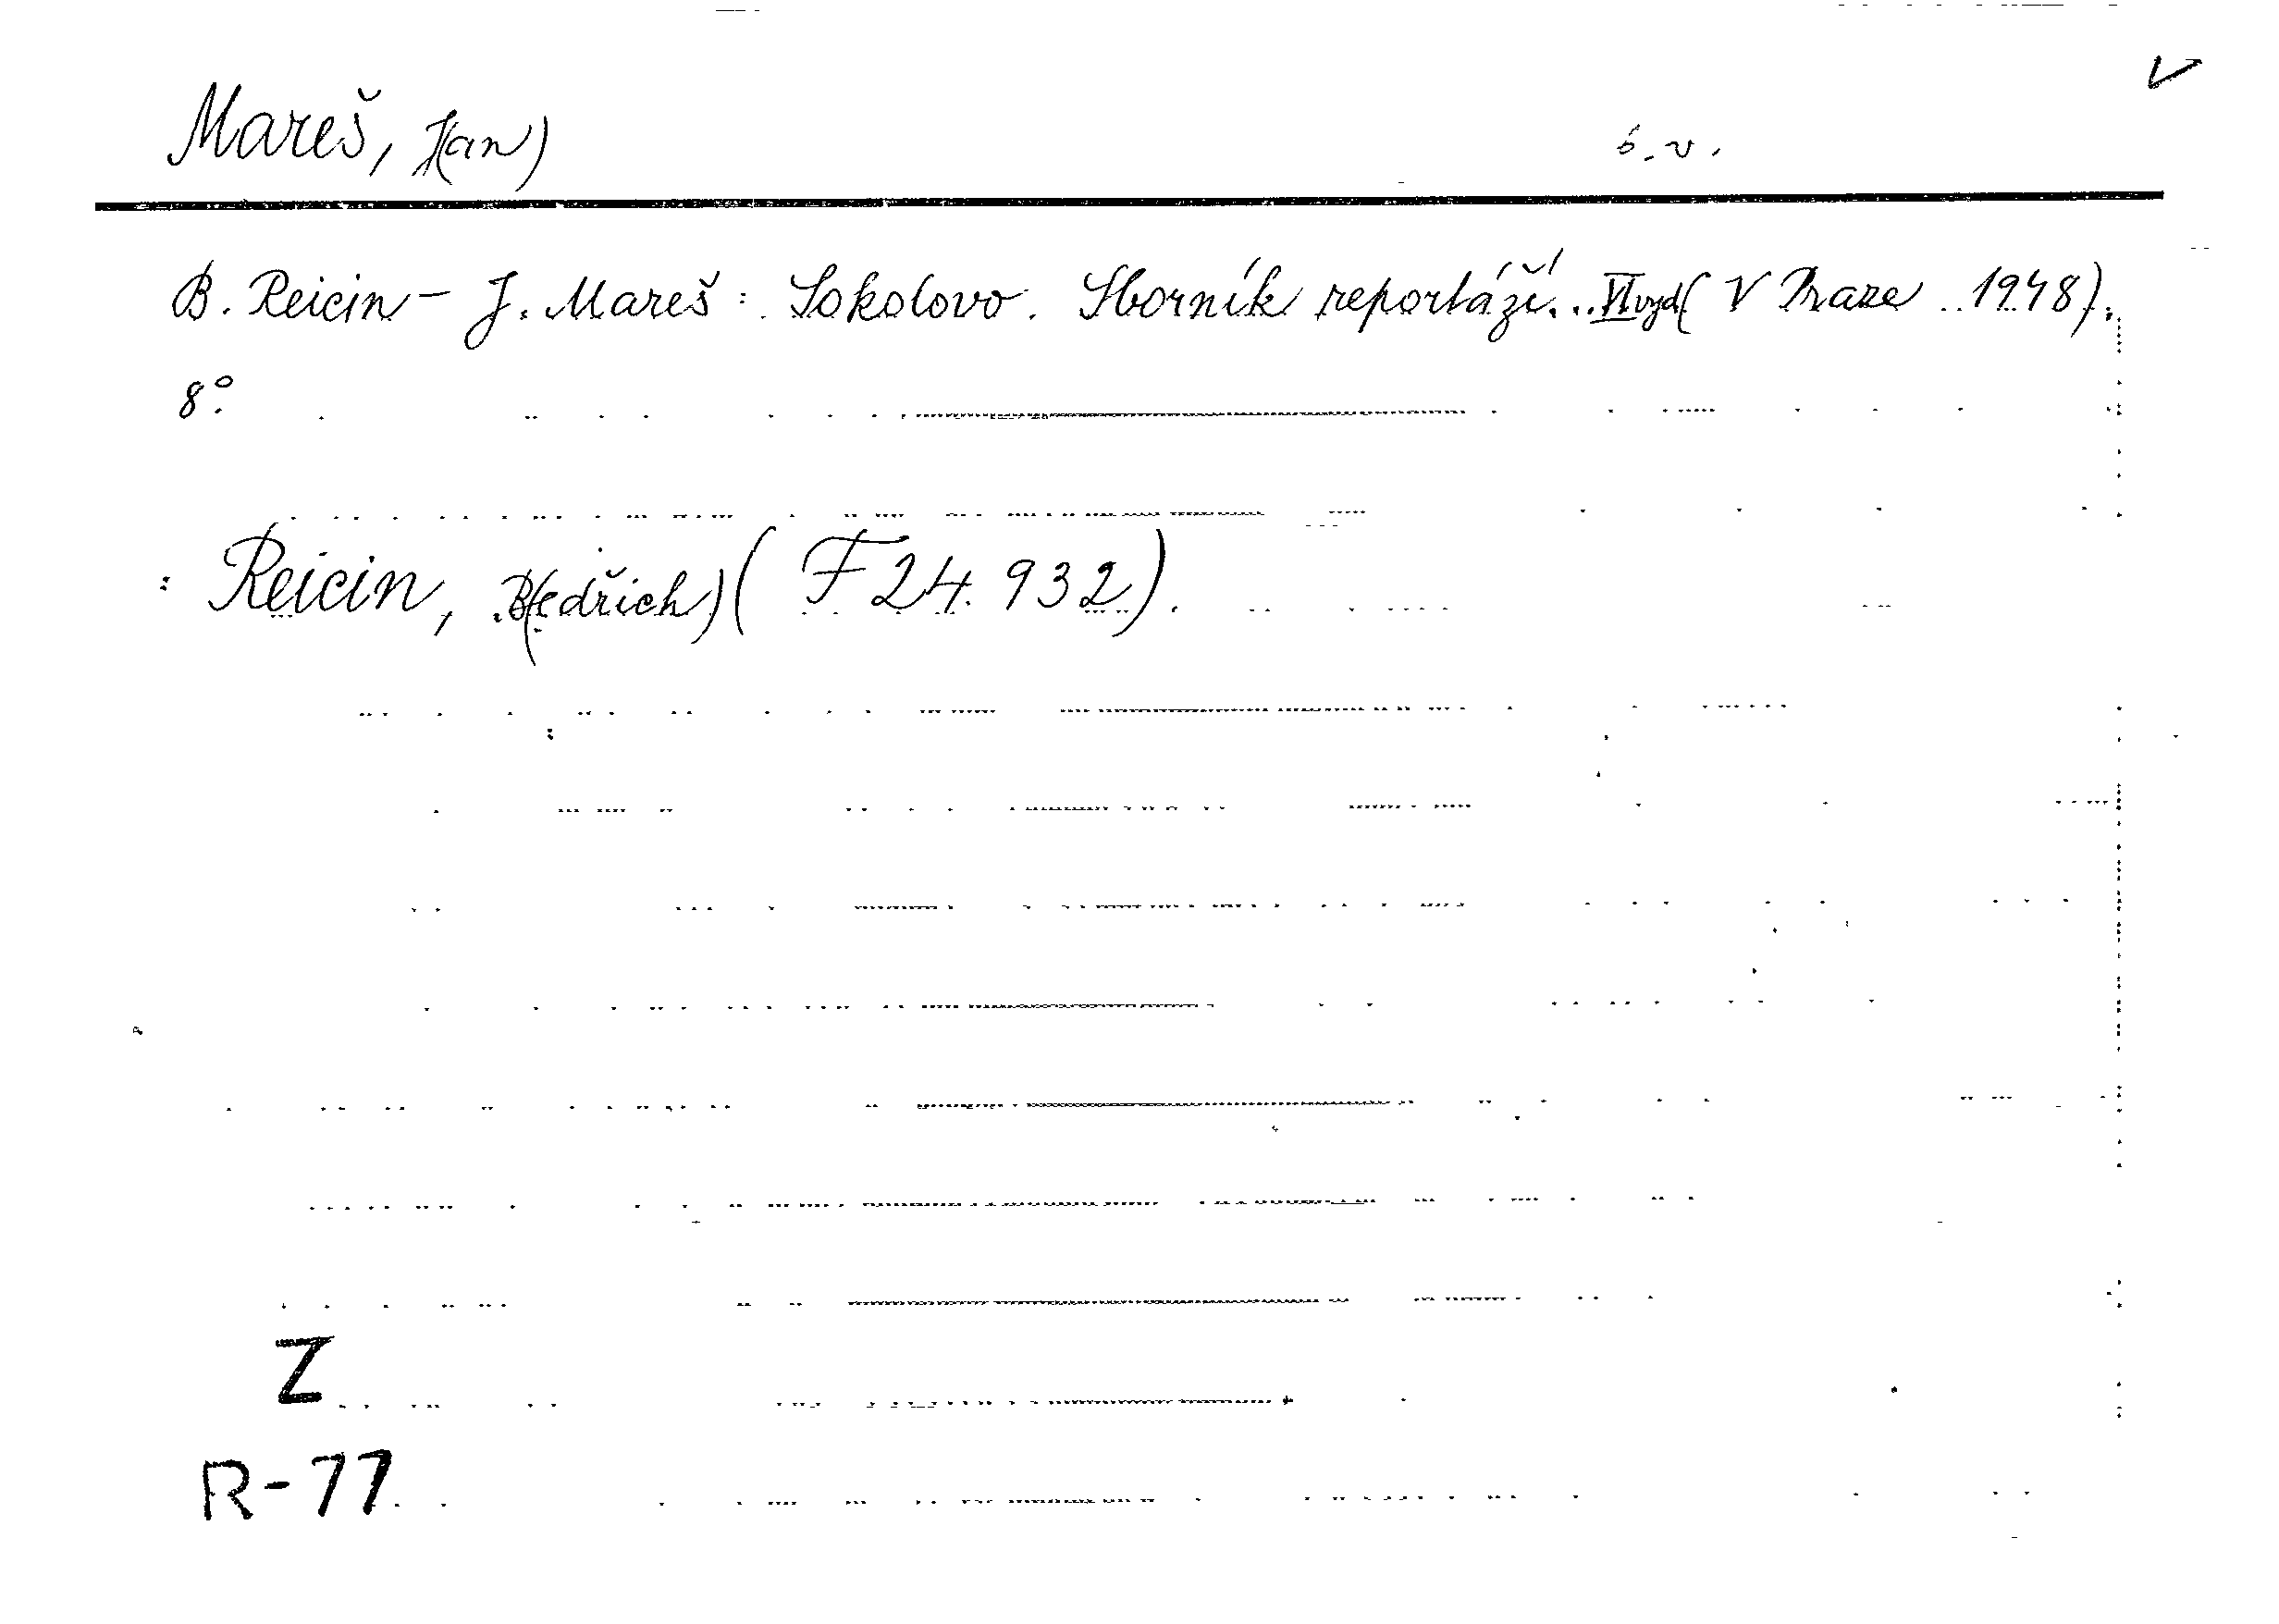 V
Mareš, J(an) š. v.
B. Reicin - J. Mareš: Sokolovo. Sborník reportáží... VI vyd( V Praze .. 1948).
8°.
: Reicin, B(edřich) (F 24.932).
Z
R-77